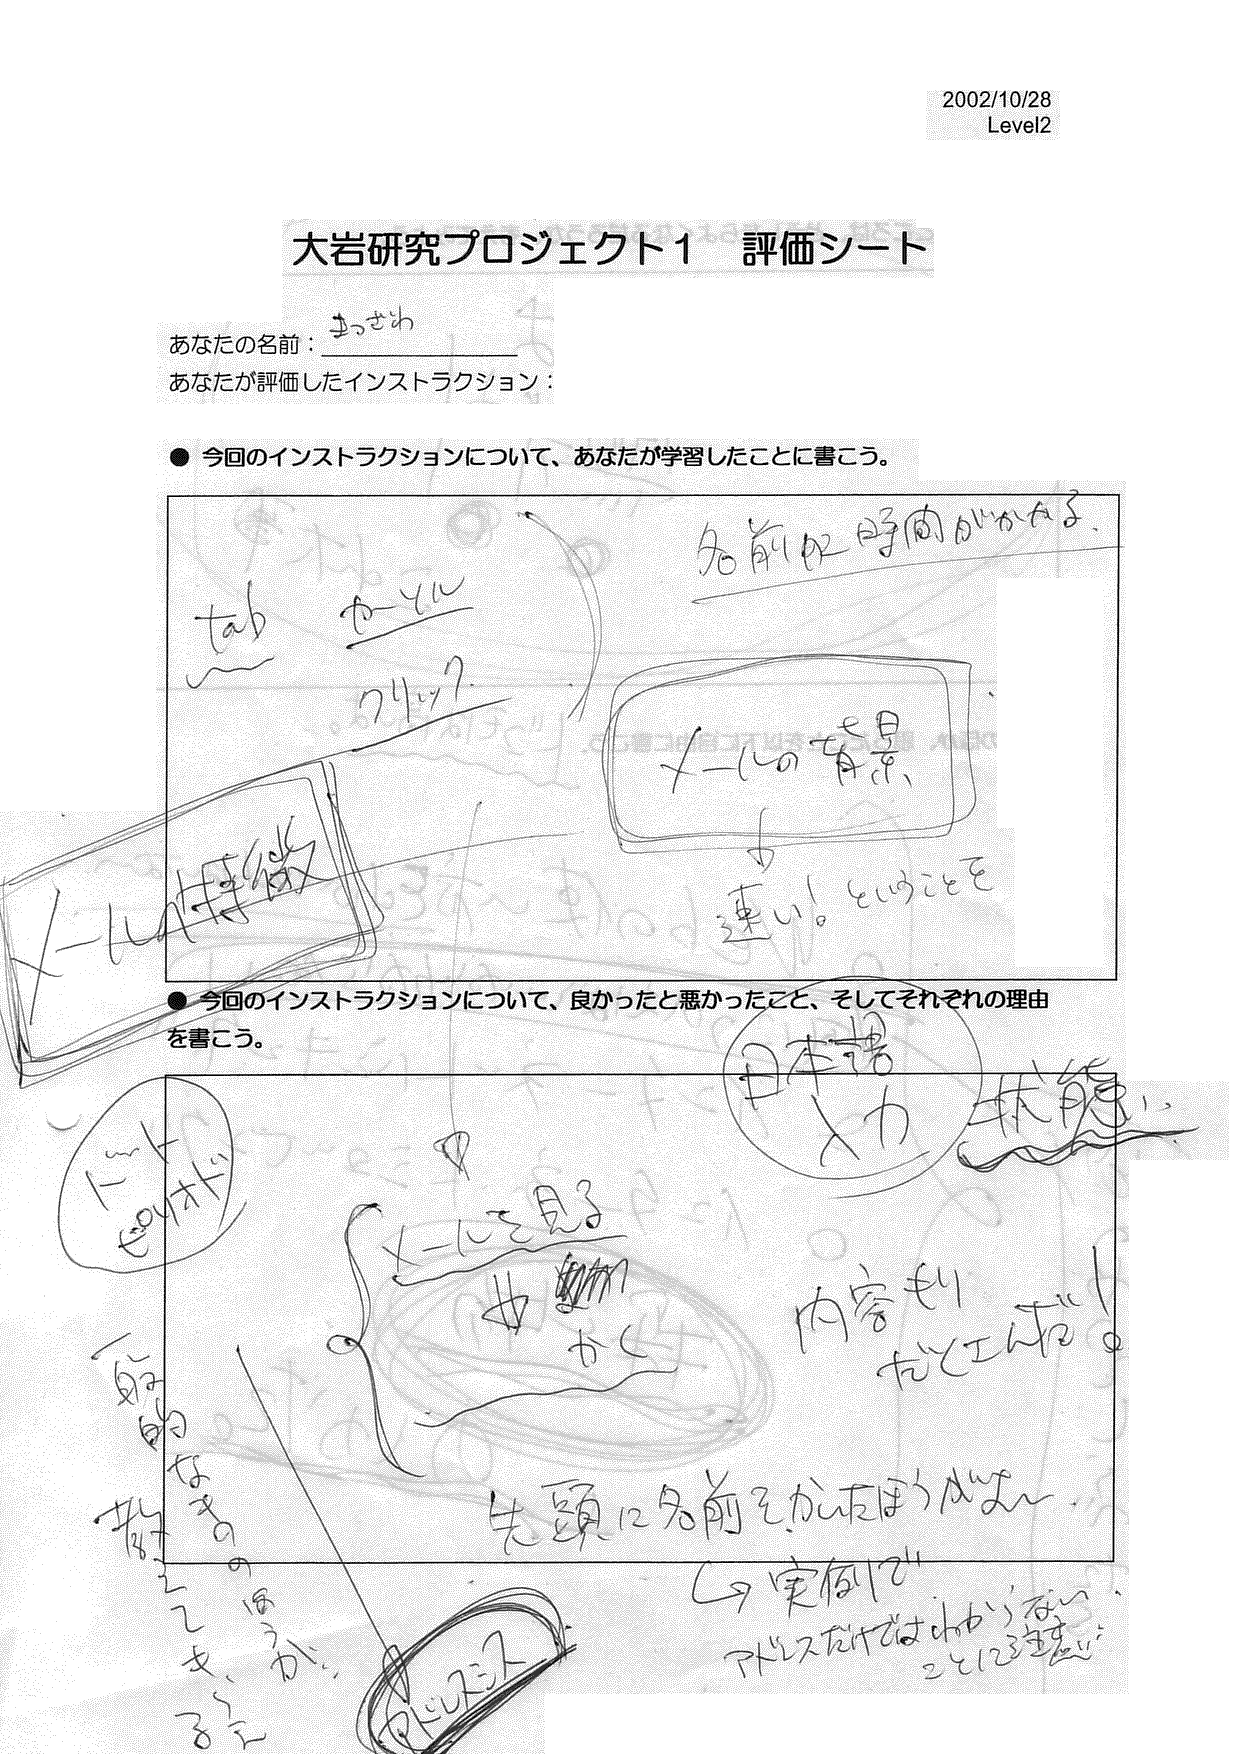 2002/10/28
Level2
大岩研究プロジェクト1　評価シート
あなたの名前：まつざわ
あなたが評価したインストラクション：
● 今回のインストラクションについて、あなたが学習したことに書こう。
名前に時間がかかる.
tab カーソル
クリック
メールの背景
メールの特徴
速い！ということを
● 今回のインストラクションについて、良かったと悪かったこと、そしてそれぞれの理由
を書こう。
日本語
入力
状態
ドット
ピリオド
メールを見る
かく
内容もり
だくさんだ！
先頭に名前をかいたほうがよい
一般的なもののほうが
アドレスミス
実例で
アドレスだけではわからない
ことに注意